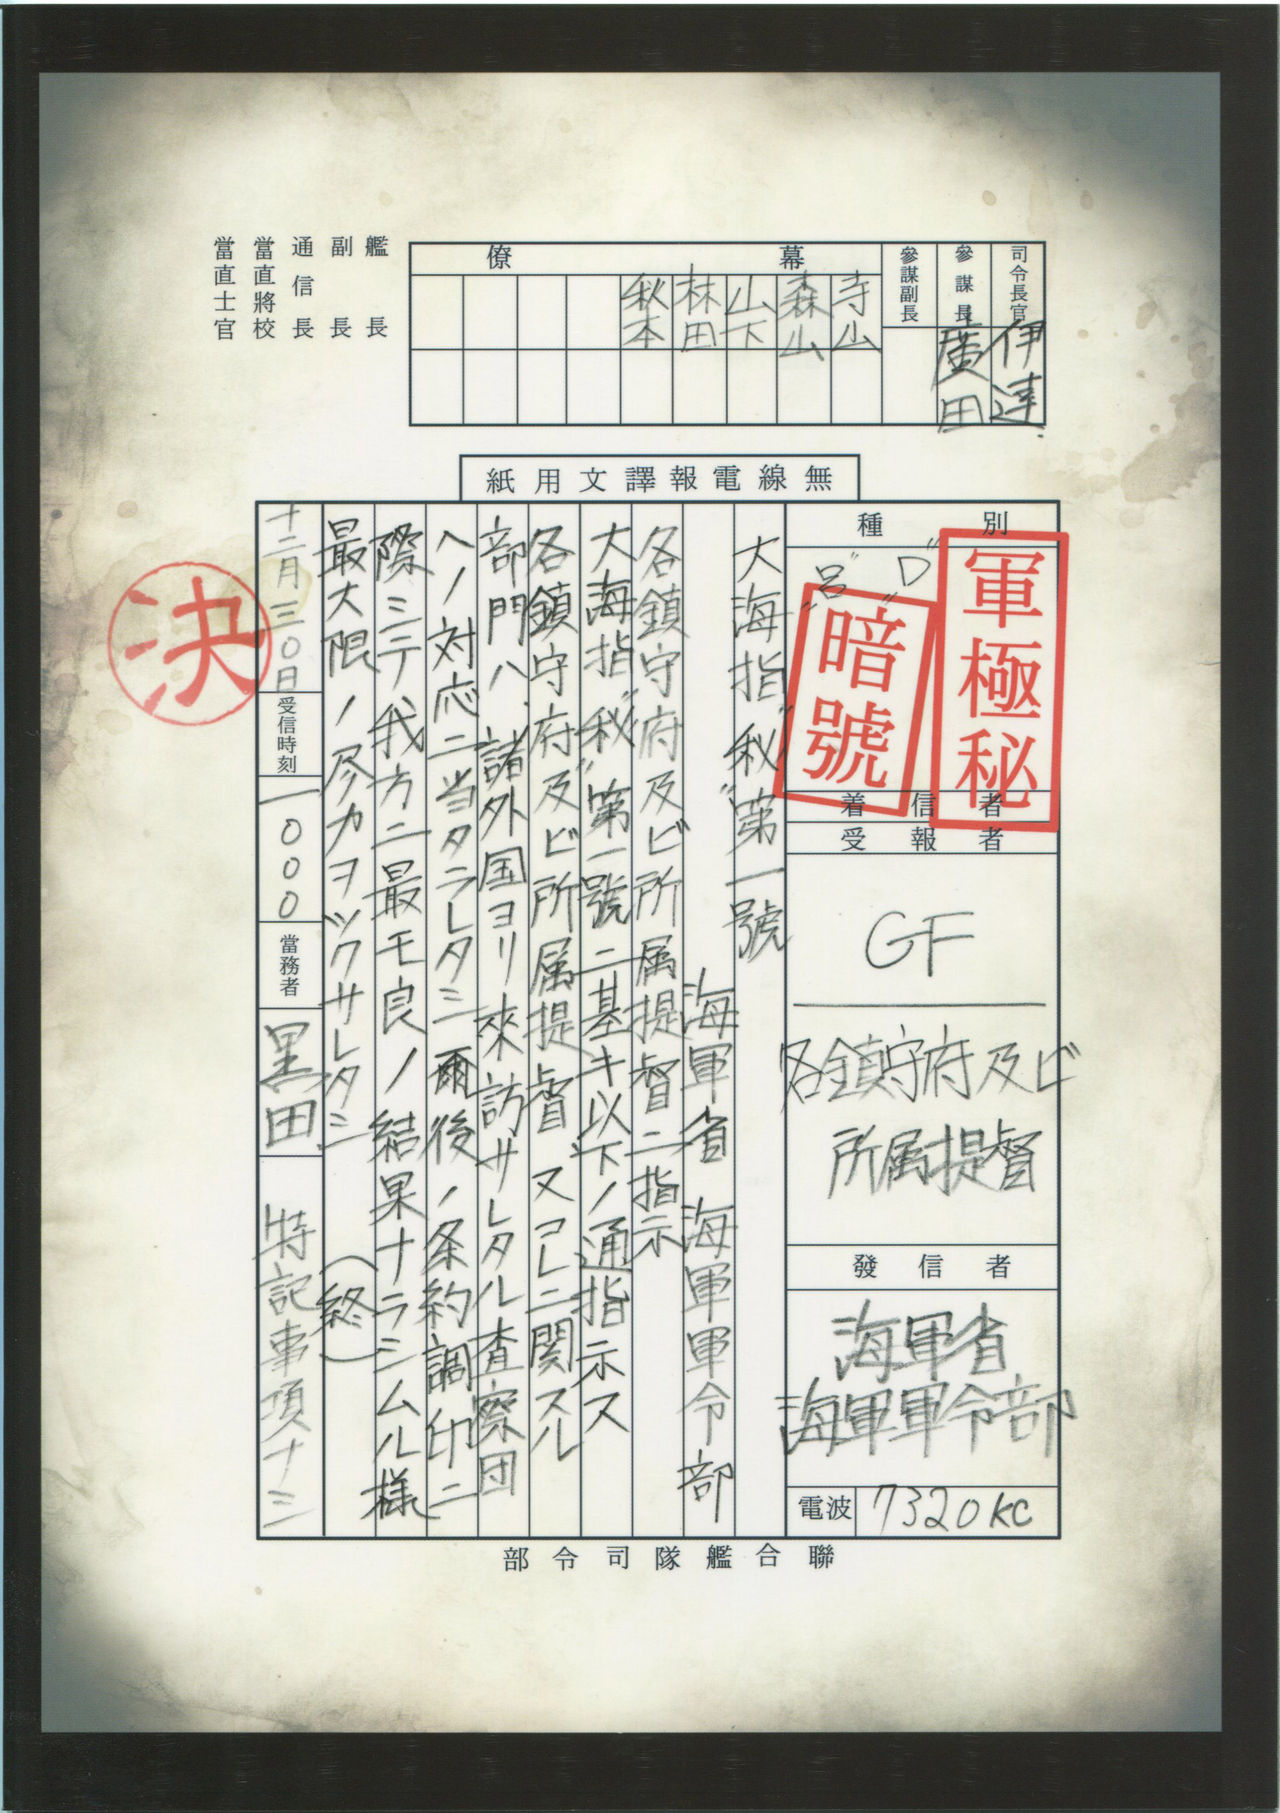 司令長官
伊達
參謀長
廣田
參謀副長
幕僚
寺山
森山
山下
林田
秋本
艦長
副長
通信長
當直將校
當直士官
無線電報譯文用紙
種別
"呂" "D"
軍極秘
暗號
着信者
受報者
GF
各鎮守府及ビ
所属提督
發信者
海軍省
海軍軍令部
電波
7320KC
大海指"秘"第一號
海軍省 海軍軍令部
各鎮守府及ビ所属提督ニ指示
大海指"秘"第一號ニ基キ以下ノ通指示ス
各鎮守府及ビ所属提督、又コレニ関スル
部門ハ、諸外国ヨリ來訪サレタル査察団
ヘノ対応ニ当タラレタシ 爾後ノ条約調印ニ
際シテ我方ニ最モ良ノ結果ナラシムル様
最大限ノ尽力ヲツクサレタシ (終)
十二月三〇日
受信時刻
一〇〇〇
當務者
黒田
特記事項ナシ
決
聯合艦隊司令部